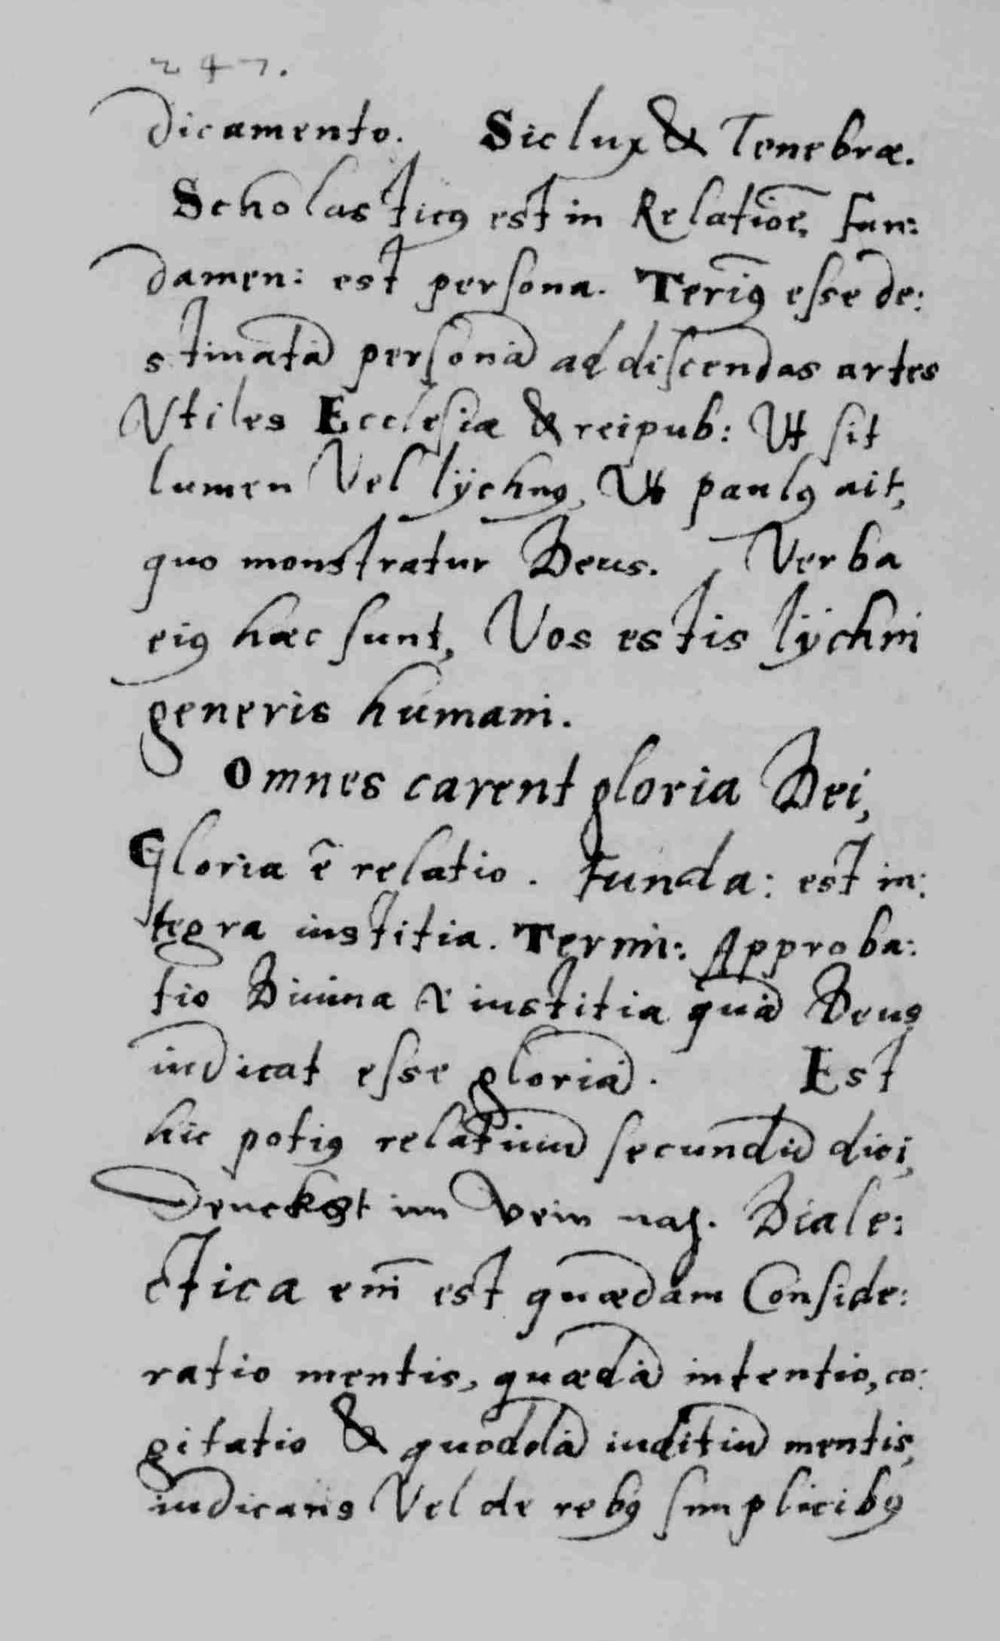 247.
dicamento. Sic lux & Tenebræ.
Scholasticꝰ est in Relatiōe, fun:
damen: est persona. Termīꝰ esse de:
stinatā personā ad discendas artes
Vtiles Ecclesiæ & reipub: Vt sit
lumen Vel lÿchnꝰ, Vt paulꝰ ait,
quo monstratur Deus. Verba
eiꝰ hæc sunt, Vos estis lÿchni
generis humani.
Omnes carent gloria Dei,
Gloria ē relatio. Funda: est in:
tegra iustitia. Termi: Approba:
tio Diuina & iustitia quā Deus
iudicat esse gloriā. Est
hic potiꝰ relatiuū secundū dici,
Druckst im Vein
Diale:
ctica em̄ est quædam Conside:
ratio mentis, quædā intentio, co:
gitatio & quoddā iuditiū mentis,
iudicans Vel de rebꝰ simplicibꝰ